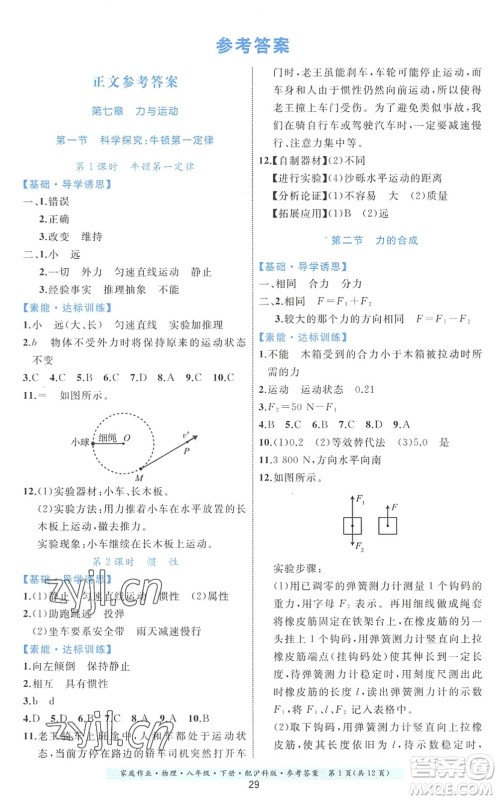 参考答案
正文参考答案
第七章 力与运动
第一节 科学探究:牛顿第一定律
第1课时 牛顿第一定律
【基础·导学诱思】
一、1.错误
2.正确
3.改变 维持
二、1.小 远
2.一切 外力 匀速直线运动 静止
3.经验事实 推理抽象 不能
【素能·达标训练】
1.小 远(大、长) 匀速直线 实验加推理
2.b 物体不受外力时将保持原来的运动状态
不变
3.C 4.C 5.B 6.C 7.D 8.A 9.C 10.C
11.= 如图所示。
小球
细绳
O
v′
P
M
12.(1)实验器材:小车、长木板。
(2)实验方法:用力推动小车在水平放置的长
木板上运动。
实验现象:小车继续在长木板上运动。
第2课时 惯 性
【基础·导学诱思】
一、静止 匀速直线运动 惯性 惯性
二、1.助跑跳远 投弹
2.坐车要系安全带 雨天行车减速
【素能·达标训练】
1.向左倾倒 向右倾倒
2.相互 具有惯性
3.b d
4.B 5.D 6.C 7.A 8.D 9.D 10.D
11.老王骑车前行时,人和车都处于运动状态,
当前方静止的轿车司机突然打开左侧车
门时,老王虽能刹车,车可停止运动,而
车身和人由于惯性仍然向前运动,所以
老王撞上车门受伤。为了防止此类事故,我
们在骑自行车时,应尽可能做到速度慢一
点、注意力集中等。
12.【自制器材】(1)不同
【进行实验】(4)沙砾水平运动的距离
【分析论证】(1)不容易 大 (2)质量
【拓展应用】(1)B (2)大
第二节 力的合成
【基础·导学诱思】
一、相同 合力 分力
二、1.相同 F=F₁+F₂
3.较大的那个力的方向相同 F=F₁-F₂
【素能·达标训练】
1.不能 木箱受到的合力小于木箱被拉动时所
需的力
2.运动 运动状态 0.21
3.F₂=50 N-F₁
4.B 5.C 6.C 7.B 8.C 9.A
10.(1)0.2 (2)等效替代法 (4)相等
11.3 800 N,方向水平向南
12.如图所示。
F₁
F₂
F
实验步骤:
(1)用已调零的弹簧测力计测量1个钩码的
重力,记录为F₂;(2)用细线做成绳套
将橡皮筋固定在铁架台上,在橡皮筋下端
挂上1个钩码,用弹簧测力计竖直向上拉
橡皮筋端点(挂钩码处)使橡皮筋伸长,待
弹簧测力计稳定时,将此时橡皮筋的长度
和弹簧测力计示数F₁记入表格中。
(3)取下钩码,用弹簧测力计竖直向上拉橡
皮筋,使橡皮筋伸长到相同的位置,待弹簧
家庭作业·物理·八年级·下册·配沪科版·参考答案 第1页(共12页)
29
zyjl.cn
zyjl.cn